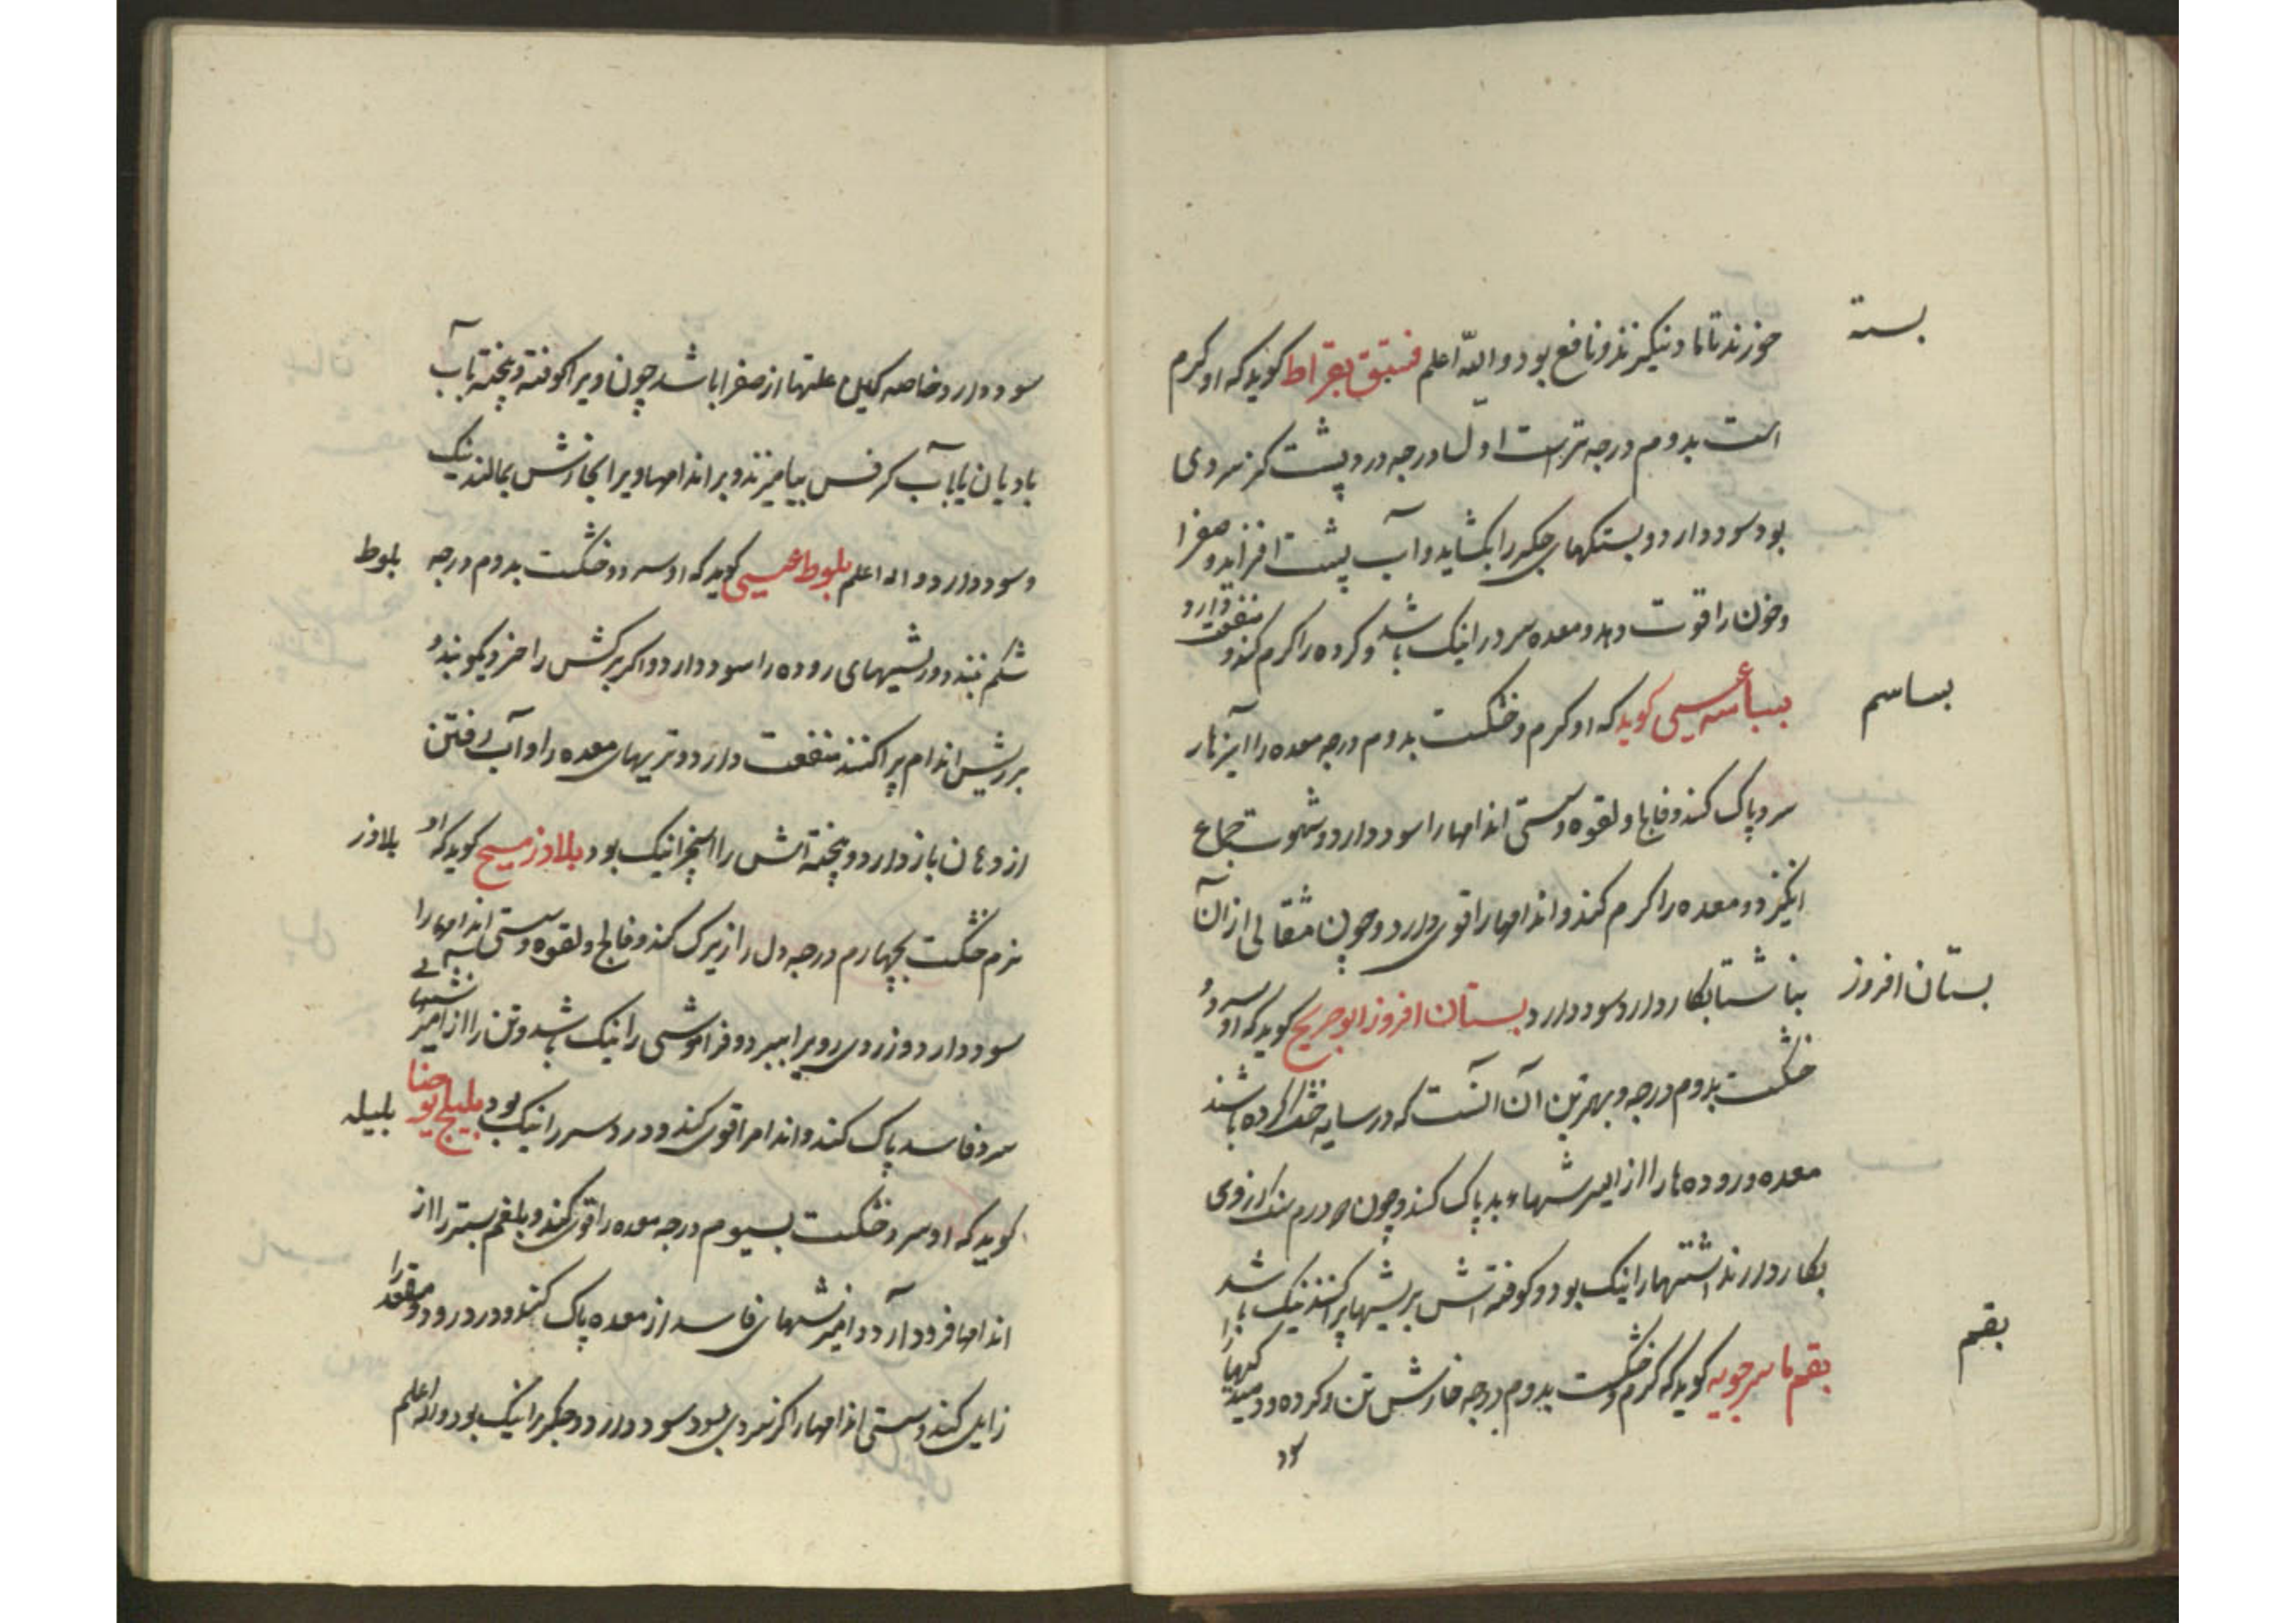 بسته
خورند تا ماد نیکیزند و نافع بود و الله اعلم فستق بقراط کوید که او کرم
است بدوم درجه ترست اول درجه درد پشت کز سردی
بود سود دارد و بستکیهای جکر را بکشاید و آب پشت افزاید و صفرا
و خون را قوت دهد و معده سرد را نیک باشد و کرده را کرم کند و منفعت دارد
بساسه عیسی کوید که او کرم و خشکست بدوم درجه معده را از
بساسم
سرد پاک کند و فالج و لقوه و سستی اندامها را سود دارد و شهوت جماع
انکیزد و معده را کرم کند و اندامها را قوی دارد و چون مثقالی از آن
بناشتا بکار دارد سود دارد بستان افروز ابو جریج کوید که او سرد و
بستان افروز
خشکست بدوم درجه و بهترین آن آنست که در سایه خشک کرده باشند
معده و روده ها را از بد پاک کند و چون درم سنک از وی
بکار دارند را نیک بود و کوفته اش بر ریشها پراکنند نیک باشد
بقم ماسرجویه کوید که کرم و خشکست بدوم درجه خارش تن و کرده و
بقم
سود
سود دارد و خاصه علتها از صفرا باشد چون ویرا کوفته و پخته بآب
بادیان یا بآب کرفس بیامیزند و بر اندامهاء ویرا بخارش بمالند نیک
و سود دارد و الله اعلم بلوط عیسی کوید که او سرد و خشکست بدوم درجه
بلوط
شکم ببندد و ریشیهای روده را سود دارد و اکر برکش را خرد بکوبند و
بر ریش اندام پراکنند منفعت دارد و تریهای معده را و آب رفتن
از دهان باز دارد و پخته اش را نیک بود بلادر مسیح کوید که او
بلادر
نرم خشکست بچهارم درجه دل را زیرک کند و فالج و لقوه و سستی اندامها را
سود دارد و زردی روی را ببرد و فراموشی را نیک باشد و تن را از
سرد فاسد پاک کند و اندام را قوی کند و درد سر را نیک بود بلیلج یوحنا
بلیله
کوید که او سرد و خشکست بسیوم درجه معده را قوی کند و بلغم بستر را از
اندامها فرود آرد و فاسد از معده پاک کند و درد روده و مقعد را
زایل کند و سستی اندامها را کز سردی بود سود دارد و جکر را نیک بود والله اعلم